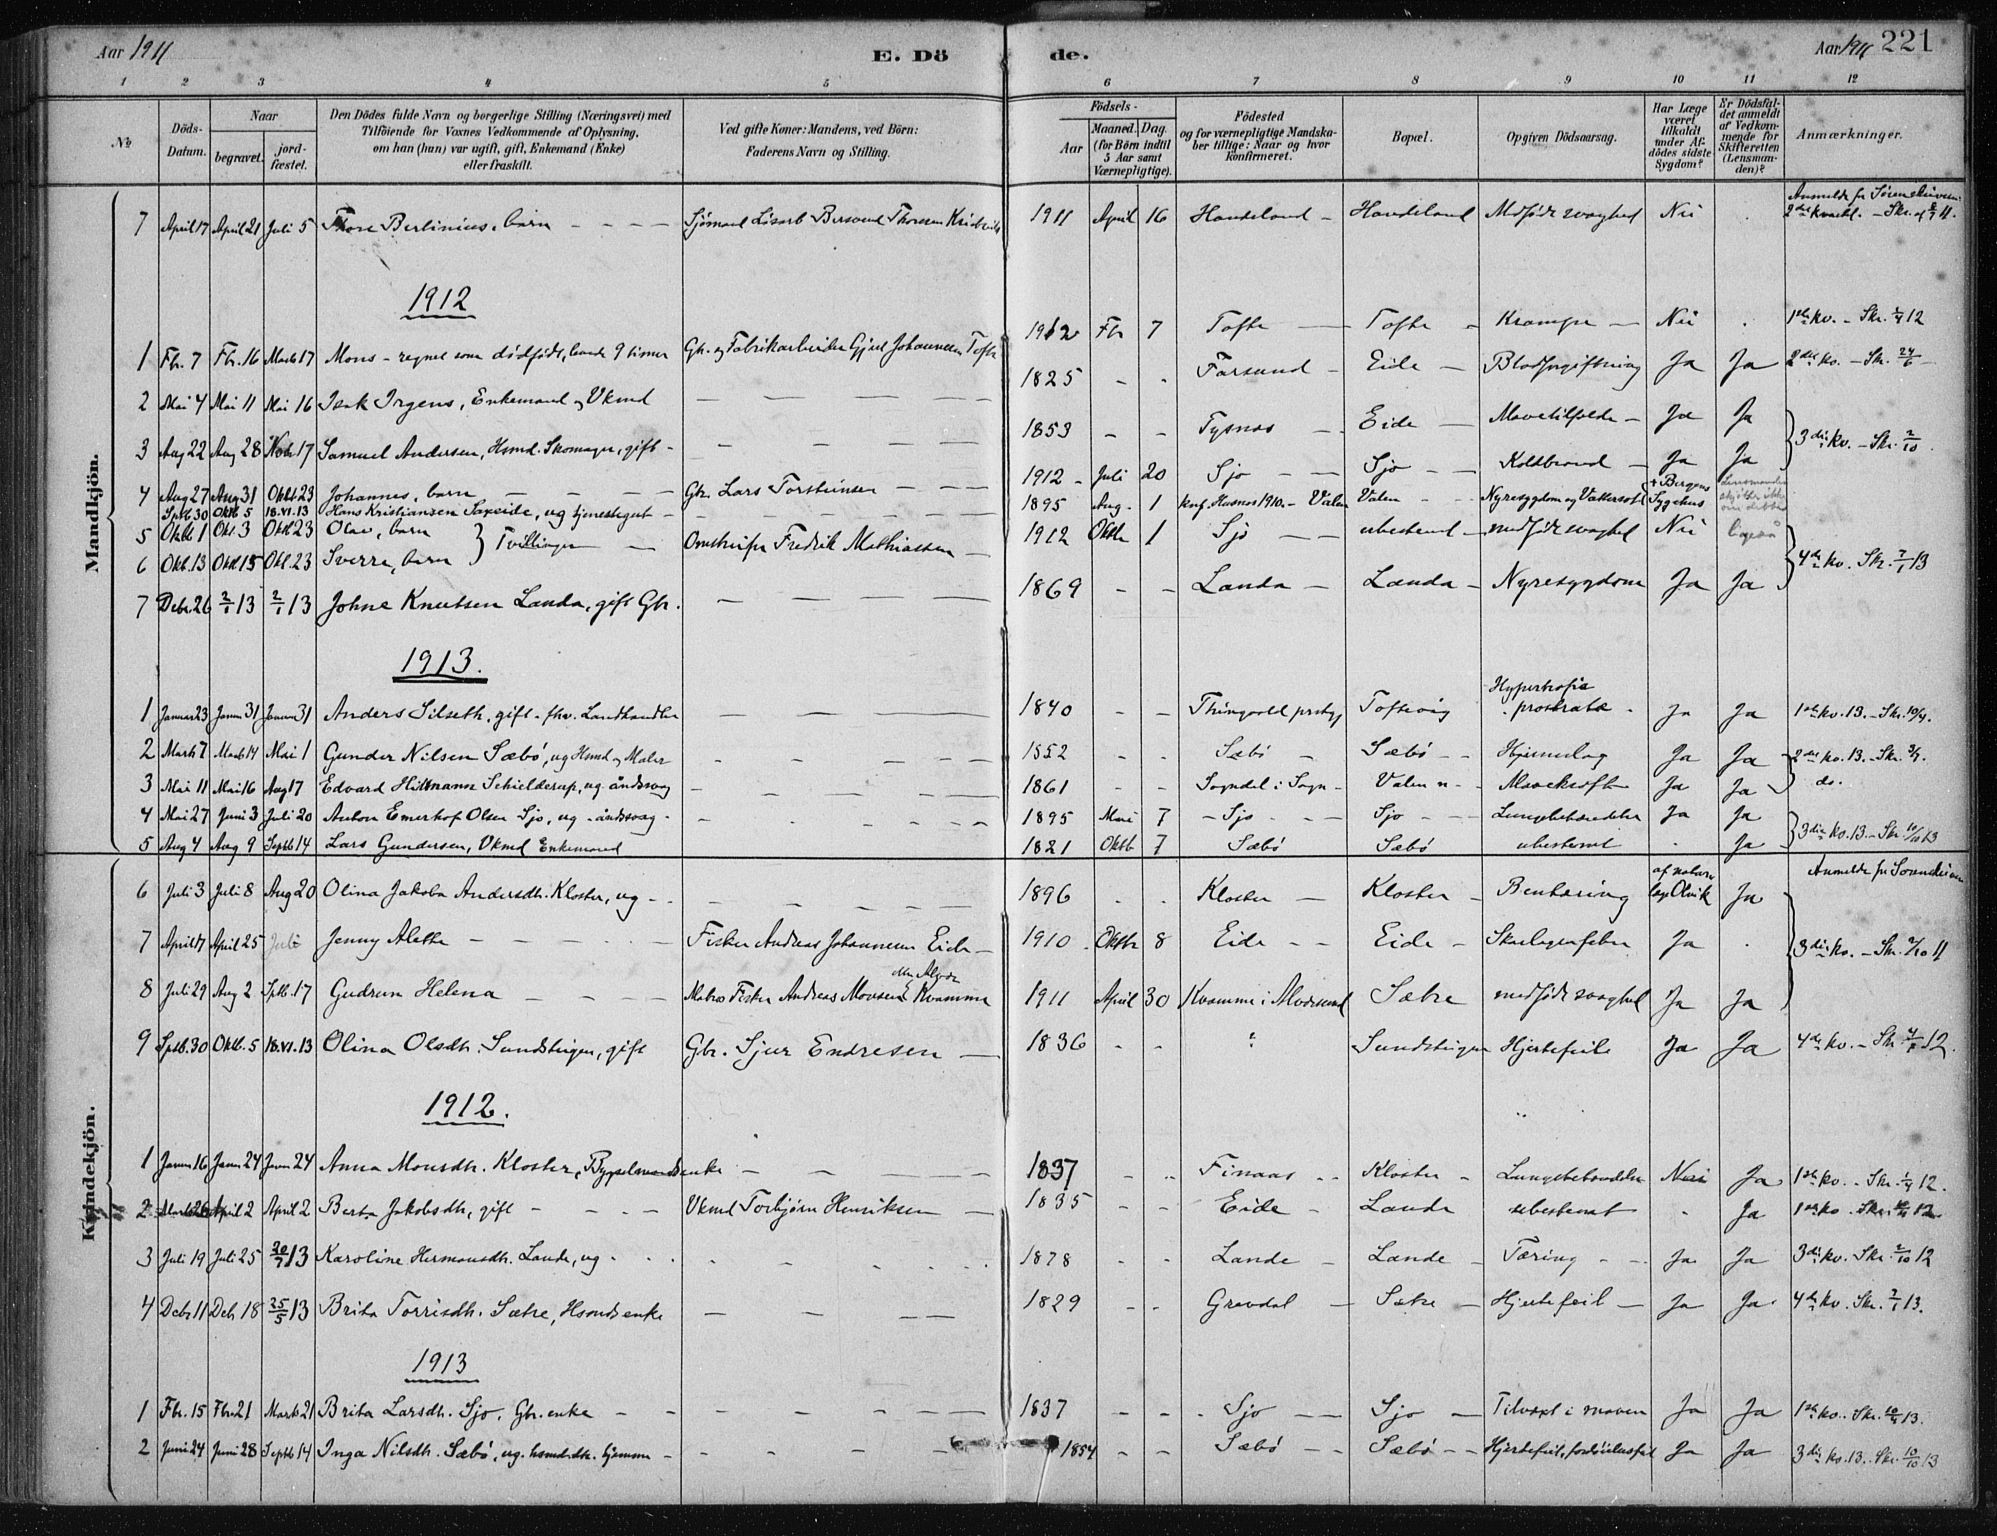 Aar 1911 E. Dö de. Aar 1911 221
1 2 3 4 5 6 7 8 9 10 11 12
No
Döds-Datum.
Naar
begravet.
jord-fæstet.
Den Dödes fulde Navn og borgerlige Stilling (Næringsvei) med
Tilföiende for Voxnes Vedkommende af Oplysning,
om han (hun) var ugift, gift, Enkemand (Enke)
eller fraskilt.
Ved gifte Koner: Mandens, ved Börn:
Faderens Navn og Stilling.
Födsels-
Aar
Maaned. Dag.
(for Börn indtil 5 Aar samt Værnepligtige).
Födested
og for værnepligtige Mandskaber tillige: Naar og hvor konfirmeret.
Bopæl.
Opgiven Dödsaarsag.
Har Læge været tilkaldt under Afdödes sidste Sygdom?
Er Dödsfaldet anmeldt af Vedkommende for Skifteretten (Lensmanden)?
Anmærkninger.
Mandkjön.
7 April 17 April 21 Juli 5 Thore Berlinius, barn Sjömand 1911 April 16 Handeland Handeland Medfödt svaghed Nei 2det kvartl. - Skr. af 11.
1912
1 Fbr. 7 Fbr. 16 Marts 17 Mons - regnet som dödfödt, levde 9 timer Gbr. og Fabrikarbeider Gjert Johannesen Tofte 1912 Fbr 7 Tofte Tofte Krampe Nei 1ste kv. - Skr. 12
2 Mai 4 Mai 11 Mai 16 Isak Irgens, Enkemand og Vkmd 1825 Farsund Eide Blodforgiftning Ja Ja 2det kv. - Skr. 24/6
3 Aug 22 Aug 28 Novb 17 Samuel Andersen, Hsmd. Skomager, gift 1853 Tysnæs Eide Mavetilfælde Ja Ja 3die kv. - Skr. 2/10
4 Aug 27 Aug 31 Oktb 23 Johannes, barn Gbr. Lars Torsteinsen 1912 Juli 20 Sjo Sjo Koldbrand Ja Ja
Sptb 30 Oktb 5 18.VI.13 Hans Kristiansen ug tjenestegut 1895 Aug. 1 konf. Husnes 1910. - Valen Valen Nyresygdom og Vattersot + Bergens Sygehus
5 Oktb 1 Okt. 3 Oktb 23 Olav, barn } Tvillinger Fredrik Mathiassen 1912 Oktbr 1 Sjo ubestemt medfödt svaghet Nei
6 Oktb. 13 Oktb 15 Okt. 23 Sverre, barn
7 Debr. 26 2/1 13 2/1 13 Johne Knutsen Landa, gift Gbr. 1869 Landa Landa Nyresygdom Ja Ja 4de kv. Skr. 7/1 13
1913.
1 Januar 23 Januar 31 Januar 31 Anders Silseth, gift - fhv. Landhandler 1840 Thingvoll prestgj Toftevåg Hypertrofia prostratæ Ja Ja 1ste kv. 13. - Skr. 10/4.
2 Marts 7 Marts 14 Mai 1 Gunder Nilsen Sæbö, ug Hsmd og Maler 1852 Sæbö Sæbö Hjerneslag Ja Ja 2det kv. 13. - Skr.
3 Mai 11 Mai 16 Aug 17 Edvard Schielderup, ug. åndssvag 1861 Sogndal i Sogn Valen Mavekræft Ja Ja do.
4 Mai 27 Juni 3 Juli 20 Anton Emerhof Olsen Sjo, ug - åndssvag 1895 Mai 7 Sjo Sjo Lungebetændelse Ja Ja
5 Aug 4 Aug 9 Septb 14 Lars Gundersen, Vkmd Enkemand 1821 Oktb 7 Sæbö Sæbö ubestemt Ja 3die kv. 13. - Skr. 10/10 13
Kvindekjön.
6 Juli 3 Juli 8 Aug 20 Olina Jakoba Andersdtr. Kloster, ug 1896 Kloster Kloster Bentæring Ja
7 April 17 April 25 Juli Jenny Alette Fisker Andreas Johannesen Eide 1910 Oktbr 8 Eide Eide Skarlagensfeber Ja 3die kv. - Skr. 2/10 11
8 Juli 29 Aug 2 Sptb. 17 Gudrun Helena Fisker Andreas Monsen Kvamme 1911 April 30 Kvamme i Alversund Sætre medfödt svaghet Ja Ja
9 Sptb. 30 Oktb. 5 18.VI.13 Olina Olsdtr. Sundsteigen, gift Gbr. Sjur Endresen 1836 ? Sundsteigen Hjertefeile Ja Ja 4de kv. - Skr. 12.
1912.
1 Januar 16 Januar 24 Januar 24 Anna Monsdtr. Kloster, enke 1837 Finaas Kloster Lungebetændelse Nei Ja 1ste kv. - Skr. 1/4 12.
2 Marts 26 April 2 April 2 Berta Jakobsdtr, gift Vkmd Torbjörn Henriksen 1835 Eide Landa ubestemt Ja 1ste kv. Skr. 12.
3 Juli 19 Juli 25 20/7 13 Karoline Hermansdtr. Lande, ug 1878 Lande Lande Tæring Ja Ja 3die kv. Skr. 2/10 12
4 Debr 11 Debr 18 25/5 13 Brita Torrisdtr. Sætre, Hsmds enke 1829 Grovdal Sætre Hjertefeil Ja Ja 4de kv. Skr. 7/1 13.
1913
1 Fbr. 15 Fbr 21 Marts 21 Brita Larsdtr. Sjo, Gbr. enke 1837 Sjo Sjo Tilvæxt i maven Ja Ja 1ste kv. Skr. 10/4 13.
2 Juni 24 Juni 28 Septb 14 Inga Nilsdtr. Sæbö, ug. hsmd.dtr. hjemme 1854 Sæbö Sæbö Hjertefeil Ja Ja 3die kv. 13. Skr. 10/10 13